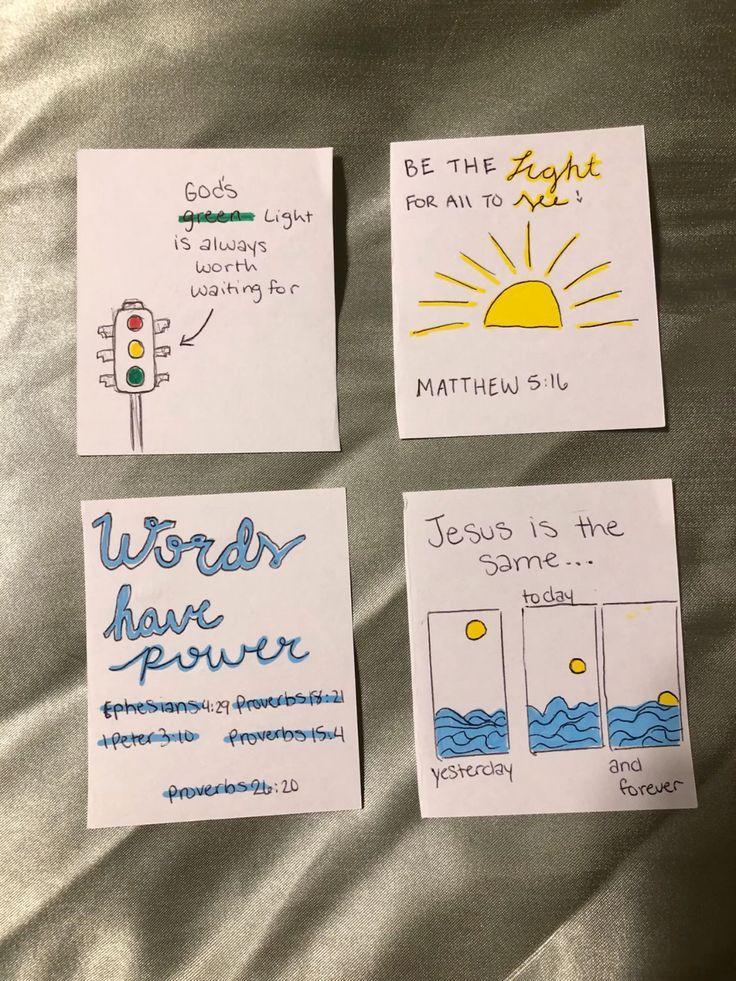 God's
green Light
is always
worth
waiting for
BE THE Light
FOR All TO see!
MATTHEW 5:16
Words
have
power
Ephesians 4:29 Proverbs 18:21
1 Peter 3:10 Proverbs 15:4
Proverbs 26:20
Jesus is the
same...
today
yesterday
and
forever